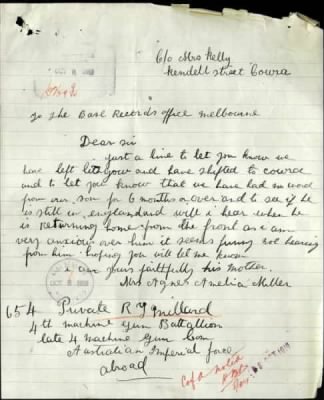 c/o Mrs Kelly
Kendell street Cowra
OCT 8 1919
To the Base Records office melbourne
Dear sir
just a line to let you know we
have left and have shifted to cowra
and to let you know that we have had no word
from our son for 6 months or over and to see if he
is still in england and will i hear when he
is Returning home from the front as i am
very anxious over him it seems funny not hearing
from him hoping you will let me know
i am yours faithfully his mother
Mrs Agnes Amelia Miller
654 Private R Y millard
4th machine Gun Battallion
late 4 machine Gun Coy
Australian Imperial force
abroad
OCT 8 1919